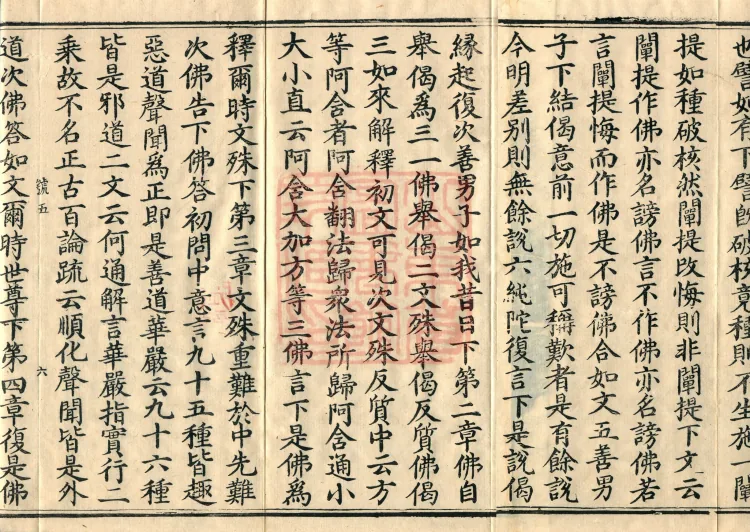 也譬如有下譬既破核竟種則不生施一闡
提如種破核然闡提改悔則非闡提下文云
闡提作佛亦名謗佛言不作佛亦名謗佛若
言闡提悔而作佛是不謗佛合如文五善男
子下結偈意前一切施可稱歎者是有餘說
今明差別則無餘說六純陀復言下是說偈
縁起復次善男子如我昔日下第二章佛自
舉偈為三一佛舉偈二文殊舉偈反質佛偈
三如來解釋初文可見次文殊反質中云方
等阿含者阿含翻法歸衆法所歸阿含通小
大小直云阿含大加方等三佛言下是佛為
釋爾時文殊下第三章文殊重難於中先難
次佛告下佛答初問中意言九十五種皆趣
惡道聲聞為正即是善道華嚴云九十六種
皆是邪道二文云何通解言華嚴指實行二
乘故不名正古百論疏云順化聲聞皆是外
號五
六
道次佛答如文爾時世尊下第四章復是佛